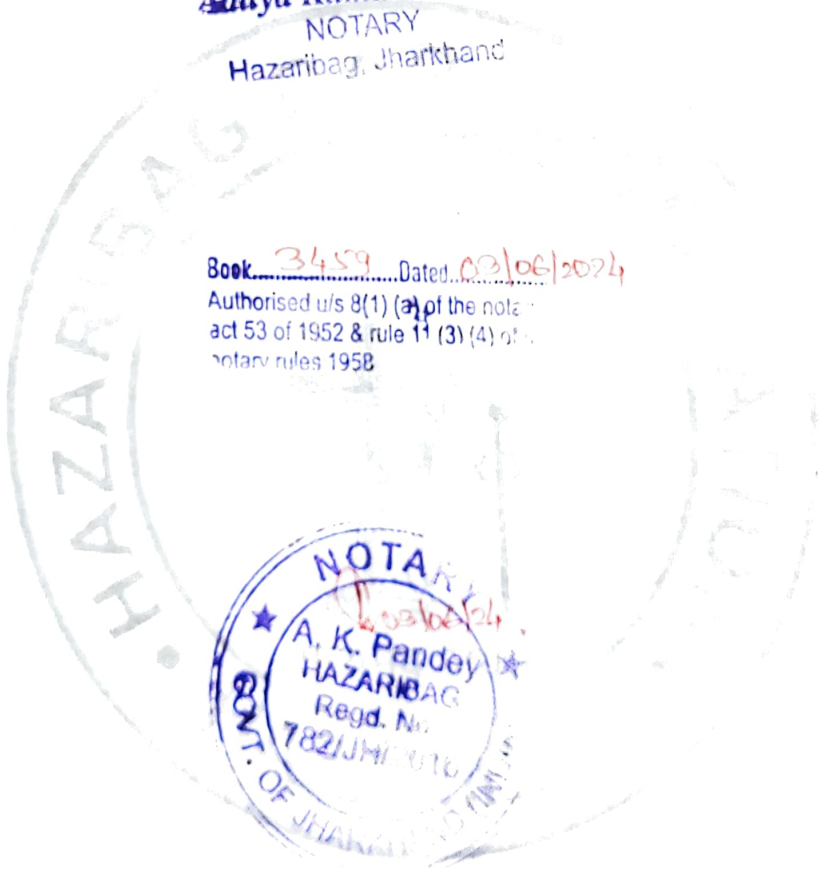 NOTARY
Hazaribag, Jharkhand
HAZARIBAG
Book 3459 Dated 03/06/2024
Authorised u/s 8(1) (a) of the
act 53 of 1952 & rule 11 (3) (4)
notary rules 1958
NOTARY
03/06/24
A. K. Pandey
HAZARIBAG
Regd. No
782/JH/
GOVT. OF JHARKHAND